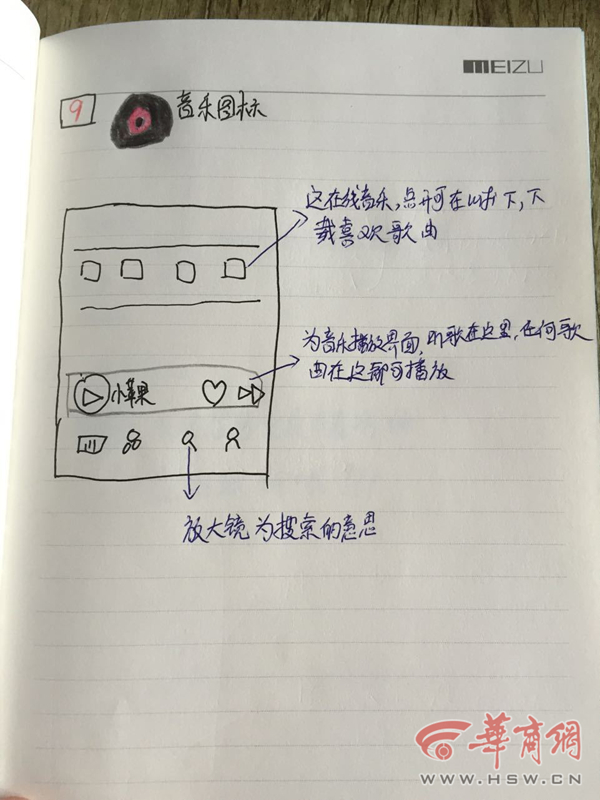 MEIZU
9
音乐图标
这在线音乐,点开可在此下,下
载喜欢歌曲
为音乐播放界面,听歌在这里,任何歌
曲在这都可播放
小苹果
放大镜为搜索的意思
華商網
WWW.HSW.CN